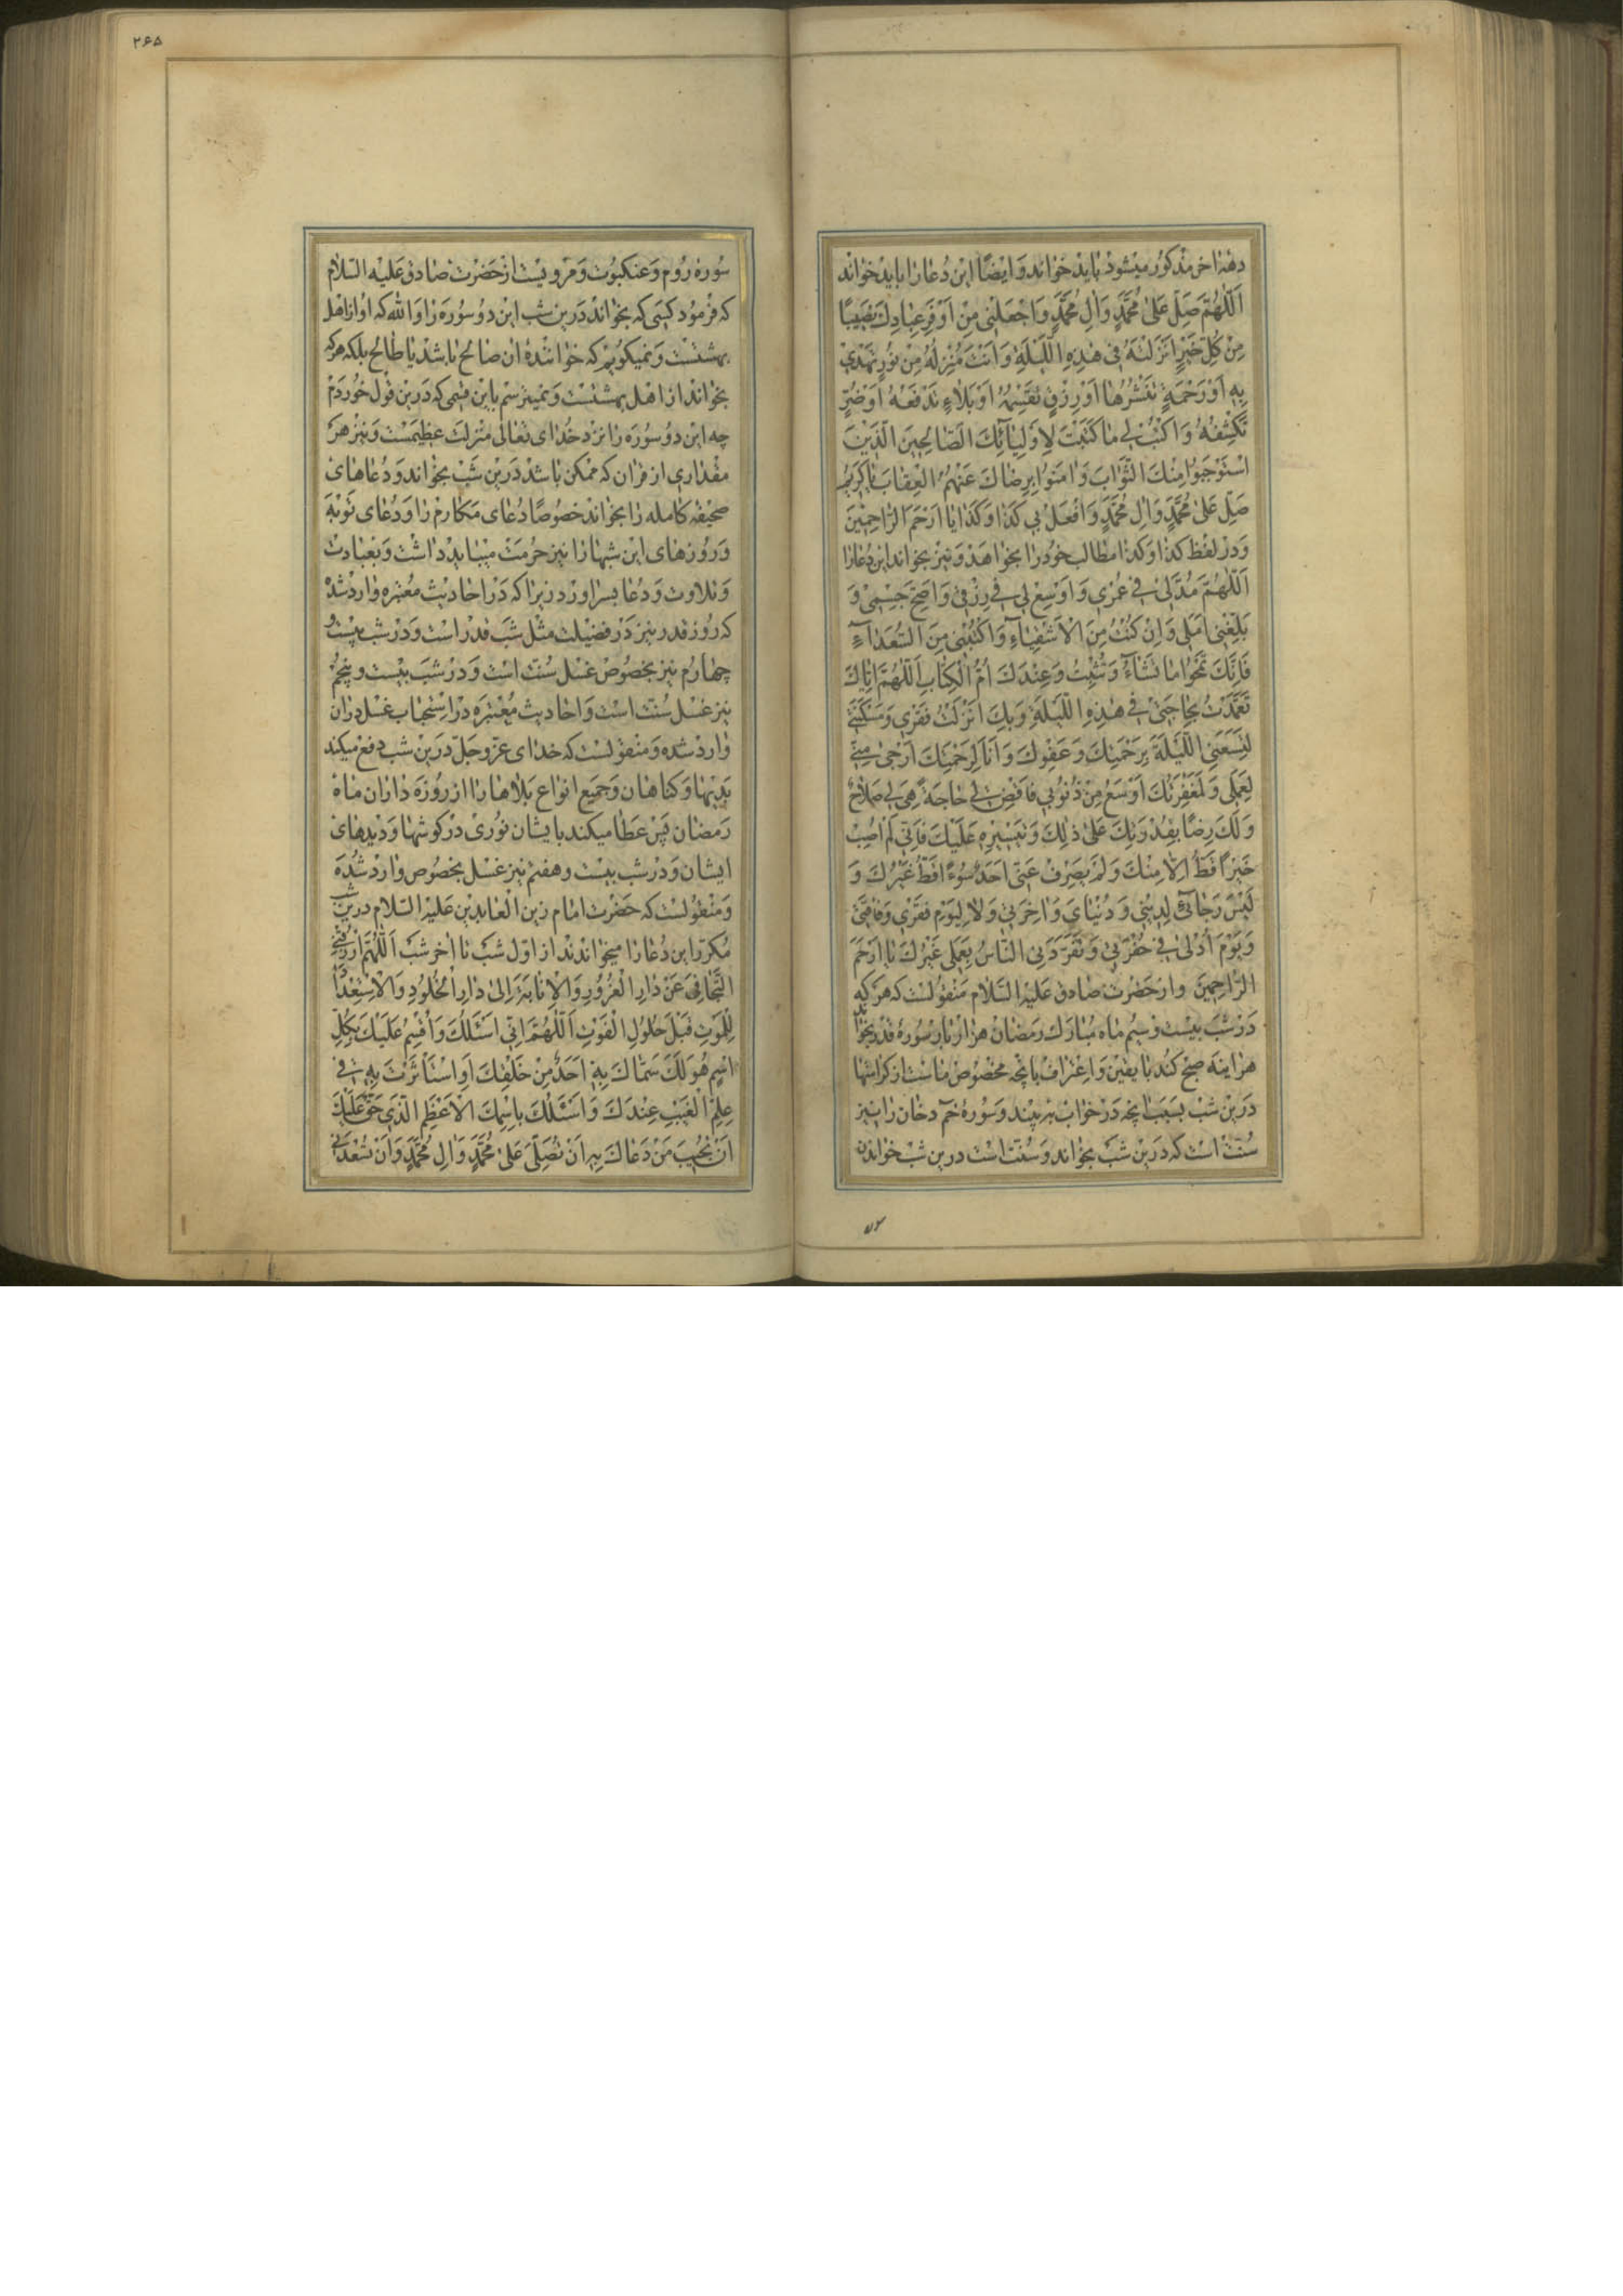 دهۀ اخر مذکور میشود باید خواند وَ ایضًا این دُعا را باید خواند
اَللّٰهُمَّ صَلِّ عَلىٰ مُحَمَّدٍ وَاٰلِ مُحَمَّدٍ وَاجْعَلْنِی مِنْ اَوْفَرِ عِبادِكَ نَصِیبًا
مِنْ کُلِّ خَیْرٍ اَنْزَلْتَهُ فی هٰذِهِ اللَّیْلَةِ وَ اَنْتَ مُنْزِلُهُ مِنْ نُورٍ تَهْدی
بِهِ اَوْ رَحْمَةٍ تَنْشُرُها اَوْ رِزْقٍ تَقْسِمُهُ اَوْ بَلاٰءٍ تَدْفَعُهُ اَوْ ضُرٍّ
تَکْشِفُهُ وَ اکْتُبْ لی ما کَتَبْتَ لِاَوْلِیٰآئِكَ الصّٰالِحِینَ الَّذِینَ
اسْتَوْجَبُوا مِنْكَ الثَّوٰابَ وَ اٰمَنُوا بِرِضٰاكَ عَنْهُمُ الْعِقٰابَ یٰا کَرِیمُ
صَلِّ عَلىٰ مُحَمَّدٍ وَاٰلِ مُحَمَّدٍ وَافْعَلْ بی کَذٰا وَ کَذٰا یٰا اَرْحَمَ الرّٰاحِمِینَ
وَ در لفظ کذا و کذا مطالب خود را بخواهد وَ نیز بخواند این دُعا را
اَللّٰهُمَّ مُدَّلی فی عُمْری وَ اَوْسِعْ لی فی رِزْقی وَ اَصِحَّ جِسْمی وَ
بَلِّغْنی اَمَلی وَ اِنْ کُنْتُ مِنَ الْاَشْقِیٰاءِ وَ اکْتُبْنی مِنَ السُّعَدٰآءِ
فَاِنَّكَ تَمْحُوا مٰا تَشٰآءُ وَ تُثْبِتُ وَ عِنْدَكَ اُمُّ الْکِتٰابِ اَللّٰهُمَّ اِیّٰاكَ
تَعَمَّدْتُ بِحٰاجَتی فی هٰذِهِ اللَّیْلَةِ وَ بِكَ اَنْزَلْتُ فَقْری وَ مَسْکَنَتی
لِتَسَعَنِی اللَّیْلَةَ بِرَحْمَتِكَ وَ عَفْوِكَ وَ اَنَا لِرَحْمَتِكَ اَرْجیٰ مِنّی
لِعَمَلی وَ لَمَغْفِرَتُكَ اَوْسَعُ مِنْ ذُنُوبی فَاقْضِ لی حٰاجَةً هِیَ لی صَلاٰحٌ
وَ لَكَ رِضًا بِقُدْرَتِكَ عَلىٰ ذٰلِكَ وَ تَیْسِیرِهِ عَلَیْكَ فَاِنّی لَمْ اُصِبْ
خَیْرًا قَطُّ اِلاّٰ مِنْكَ وَ لَمْ یَصْرِفْ عَنّی اَحَدٌ سُوءًا قَطُّ غَیْرُكَ وَ
لَیْسَ رَجٰائی لِدِینی وَ دُنْیٰایَ وَ اٰخِرَتی وَ لاٰ لِیَوْمِ فَقْری وَ فٰاقَتی
وَ یَوْمَ اُدْلیٰ فی حُفْرَتی وَ تَفَرَّدَنِی النّٰاسُ بِعَمَلی غَیْرُكَ یٰا اَرْحَمَ
الرّٰاحِمِینَ و از حَضْرت صٰادق عَلَیْهِ السَّلاٰم مَنْقُولست که هَر که
دَرْ شَب بیْست و سیُم ماه مُبارك رَمضان هزار بار سُورۀ قدْر بخواند
هراینه صبح کند با یقین وَ اعتراف بانچه مخصُوص ماست از کرامتها
دَرین شب بسَبَب انچه دَر خواب به بیند وَ سُورۀ حٰم دخان را نیز
سُنّت است که دَرین شب بخواند وَ سُنّت است درین شب خواندن
سُوره رُوم وَ عنکبُوت وَ مرویست از حَضْرت صٰادق عَلَیْهِ السّلام
که فرمود کسی که بخواند دَرین شب این دو سُوره را وَ الله که او از اهل
بهشتست وَ نمیکویم که خوانندۀ ان صالح باشد یا طالح بلکه هر که
بخواند از اهل بهشتست وَ نمیترسم باین قسمی که دَرین قول خوردم
چه این دو سُوره را نزد خُدای تَعالی منزلت عظیمست وَ نیز هر
مقداری از قران که ممکن باشد دَرین شَبْ بخواند وَ دُعاهای
صحیفه کامله را بخواند خصوصًا دُعای مکارم را وَ دُعای توبَه
وَ رُوزهای این شبها را نیز حُرمَت میباید داشت وَ بعبادت
وَ تلاوت وَ دُعا بسر اورد زیرا که دَر احادیث مُعْتبره وارد شده
که رُوز قدر نیز دَر فضیلت مثل شَب قدر است وَ دَر شب بیست و
چهارم نیز بخصُوص غسل سُنّت است وَ دَر شَب بیست و پنجم
نیز غسل سُنّت است وَ احادیث مُعْتبَره در استحباب غسل دران
وارد شده وَ منقولست که خدای عزّ وجلّ دَرین شب دفع میکند
بَدیها وَ کناهان وَ جمیع انواع بَلاها را از رُوزه داران ماه
رَمضان پَس عَطا میکند بایشان نوری در کوشها وَ دیدهای
ایشان وَ در شب بیست و هفتم نیز غسل بخصوص وارد شُده
وَ مَنْقُولست که حَضْرت امام زین الْعابدین عَلَیْهِ السّلام درین شب
مُکرّر این دُعا را میخواندند از اوّل شَب تا اخر شب اَللّٰهُمَّ ارْزُقْنِی
التَّجٰافیَ عَنْ دٰارِ الْغُرُورِ وَ الْاِنٰابَةَ اِلىٰ دٰارِ الْخُلُودِ وَ الْاِسْتِعْدٰادَ
لِلْمَوْتِ قَبْلَ حُلُولِ الْفَوْتِ اَللّٰهُمَّ اِنّی اَسْئَلُكَ وَ اُقْسِمُ عَلَیْكَ بِکُلِّ
اسْمٍ هُوَ لَكَ سَمّٰاكَ بِهِ اَحَدٌ مِنْ خَلْقِكَ اَوِ اسْتَأْثَرْتَ بِهِ فی
عِلْمِ الْغَیْبِ عِنْدَكَ وَ اَسْئَلُكَ بِاسْمِكَ الْاَعْظَمِ الَّذی حَقٌّ عَلَیْكَ
اَنْ تُجیبَ مَنْ دَعٰاكَ بِهِ اَنْ تُصَلِّیَ عَلىٰ مُحَمَّدٍ وَ اٰلِ مُحَمَّدٍ وَ اَنْ تُسْعِدَنی
۲۶۵